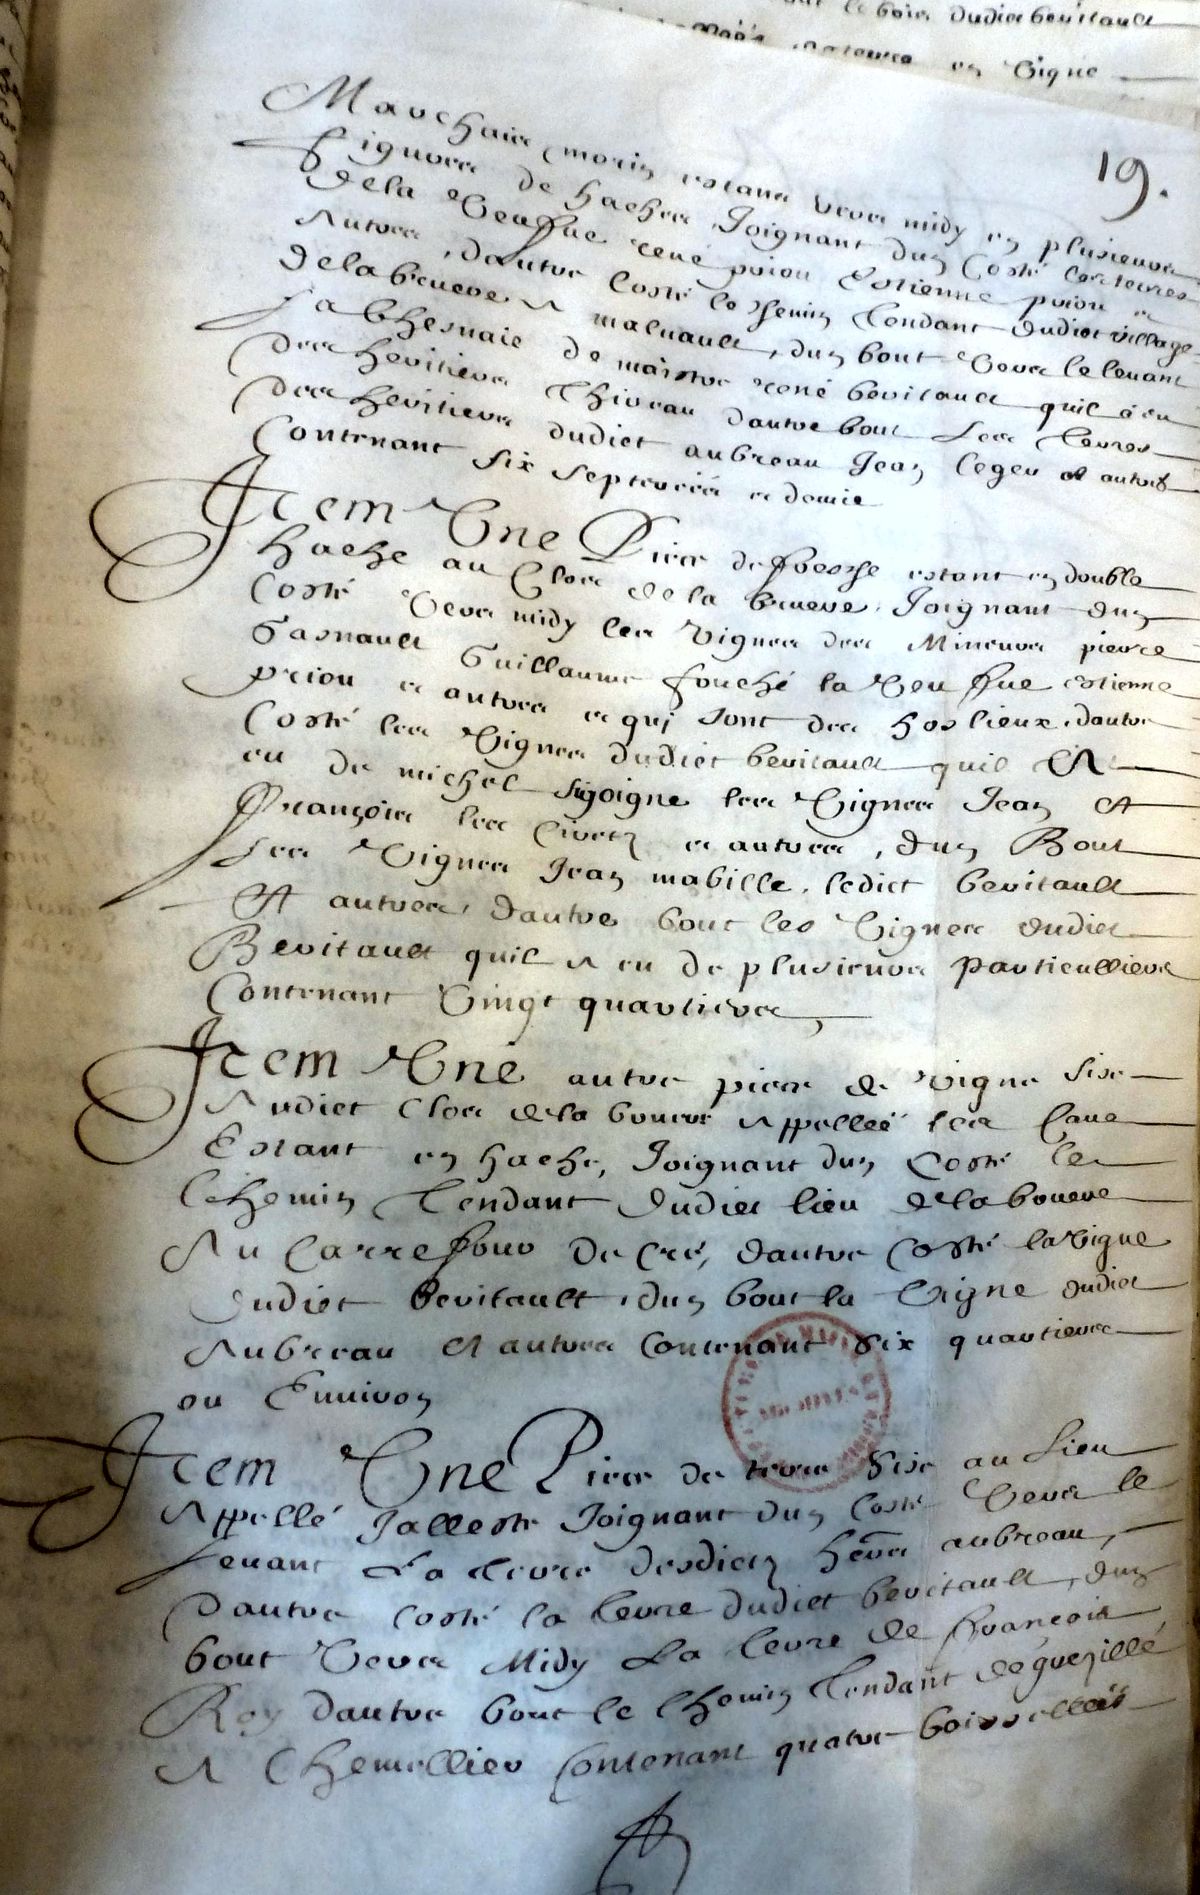 le bois dudict bevitault
en vigne
19.
Mauchais morin estant vers midy en plusieurs
figures de haches Joignant dun Costé les terres
dela Veufue rené priou Estienne priou et
Autres, dautre Costé le chemin tendant dudict village
dela bruere A malnault, dun bout Vers le levant
La Chesnaie de maistre rené bevitault quil a eu
des heritiers Thireau dautre bout Les terres
des heritiers dudict aubreau Jean leger et autres
Contenant six septerées et demie
Item Une Piece de friche estant en double
hache au Clos dela bruere, Joignant dun
Costé Vers midy les Vignes des Mineurs pierre
Gasnault Guillaume fouché la Veufue estienne
priou et autres et qui sont des hoslieux, dautre
Costé les Vignes dudict bevitault quil A
eu de michel sigoigne les Vignes Jean et
François les Civetz et autres, dun Bout
Les Vignes Jean mabille, ledict bevitault
Et autres, dautre bout les Vignes dudict
Bevitault quil A eu de plusieurs particulliers
Contenant Vingt quartiers,
Item Une autre piece de vigne size
Audict Clos dela bouere Appellée les Caue
Estant en hache, Joignant dun Costé le
Chemin Tendant dudict lieu dela bouere
Au Carrefour de Cré, dautre Costé la Vigne
Dudict Bevitault, dun bout la Vigne dudict
Aubreau et autres Contenant six quartiers
ou Environ
Item Une Piece de terre size au Lieu
Appellé Jalleste Joignant dun Costé Vers le
Levant La terre desdictz hers aubreau,
Dautre Costé la terre dudict bevitault, dun
bout Vers Midy La terre de François
Roy Dautre bout le Chemin Tendant de guezillé
A Chemellier Contenant quatre boisselées